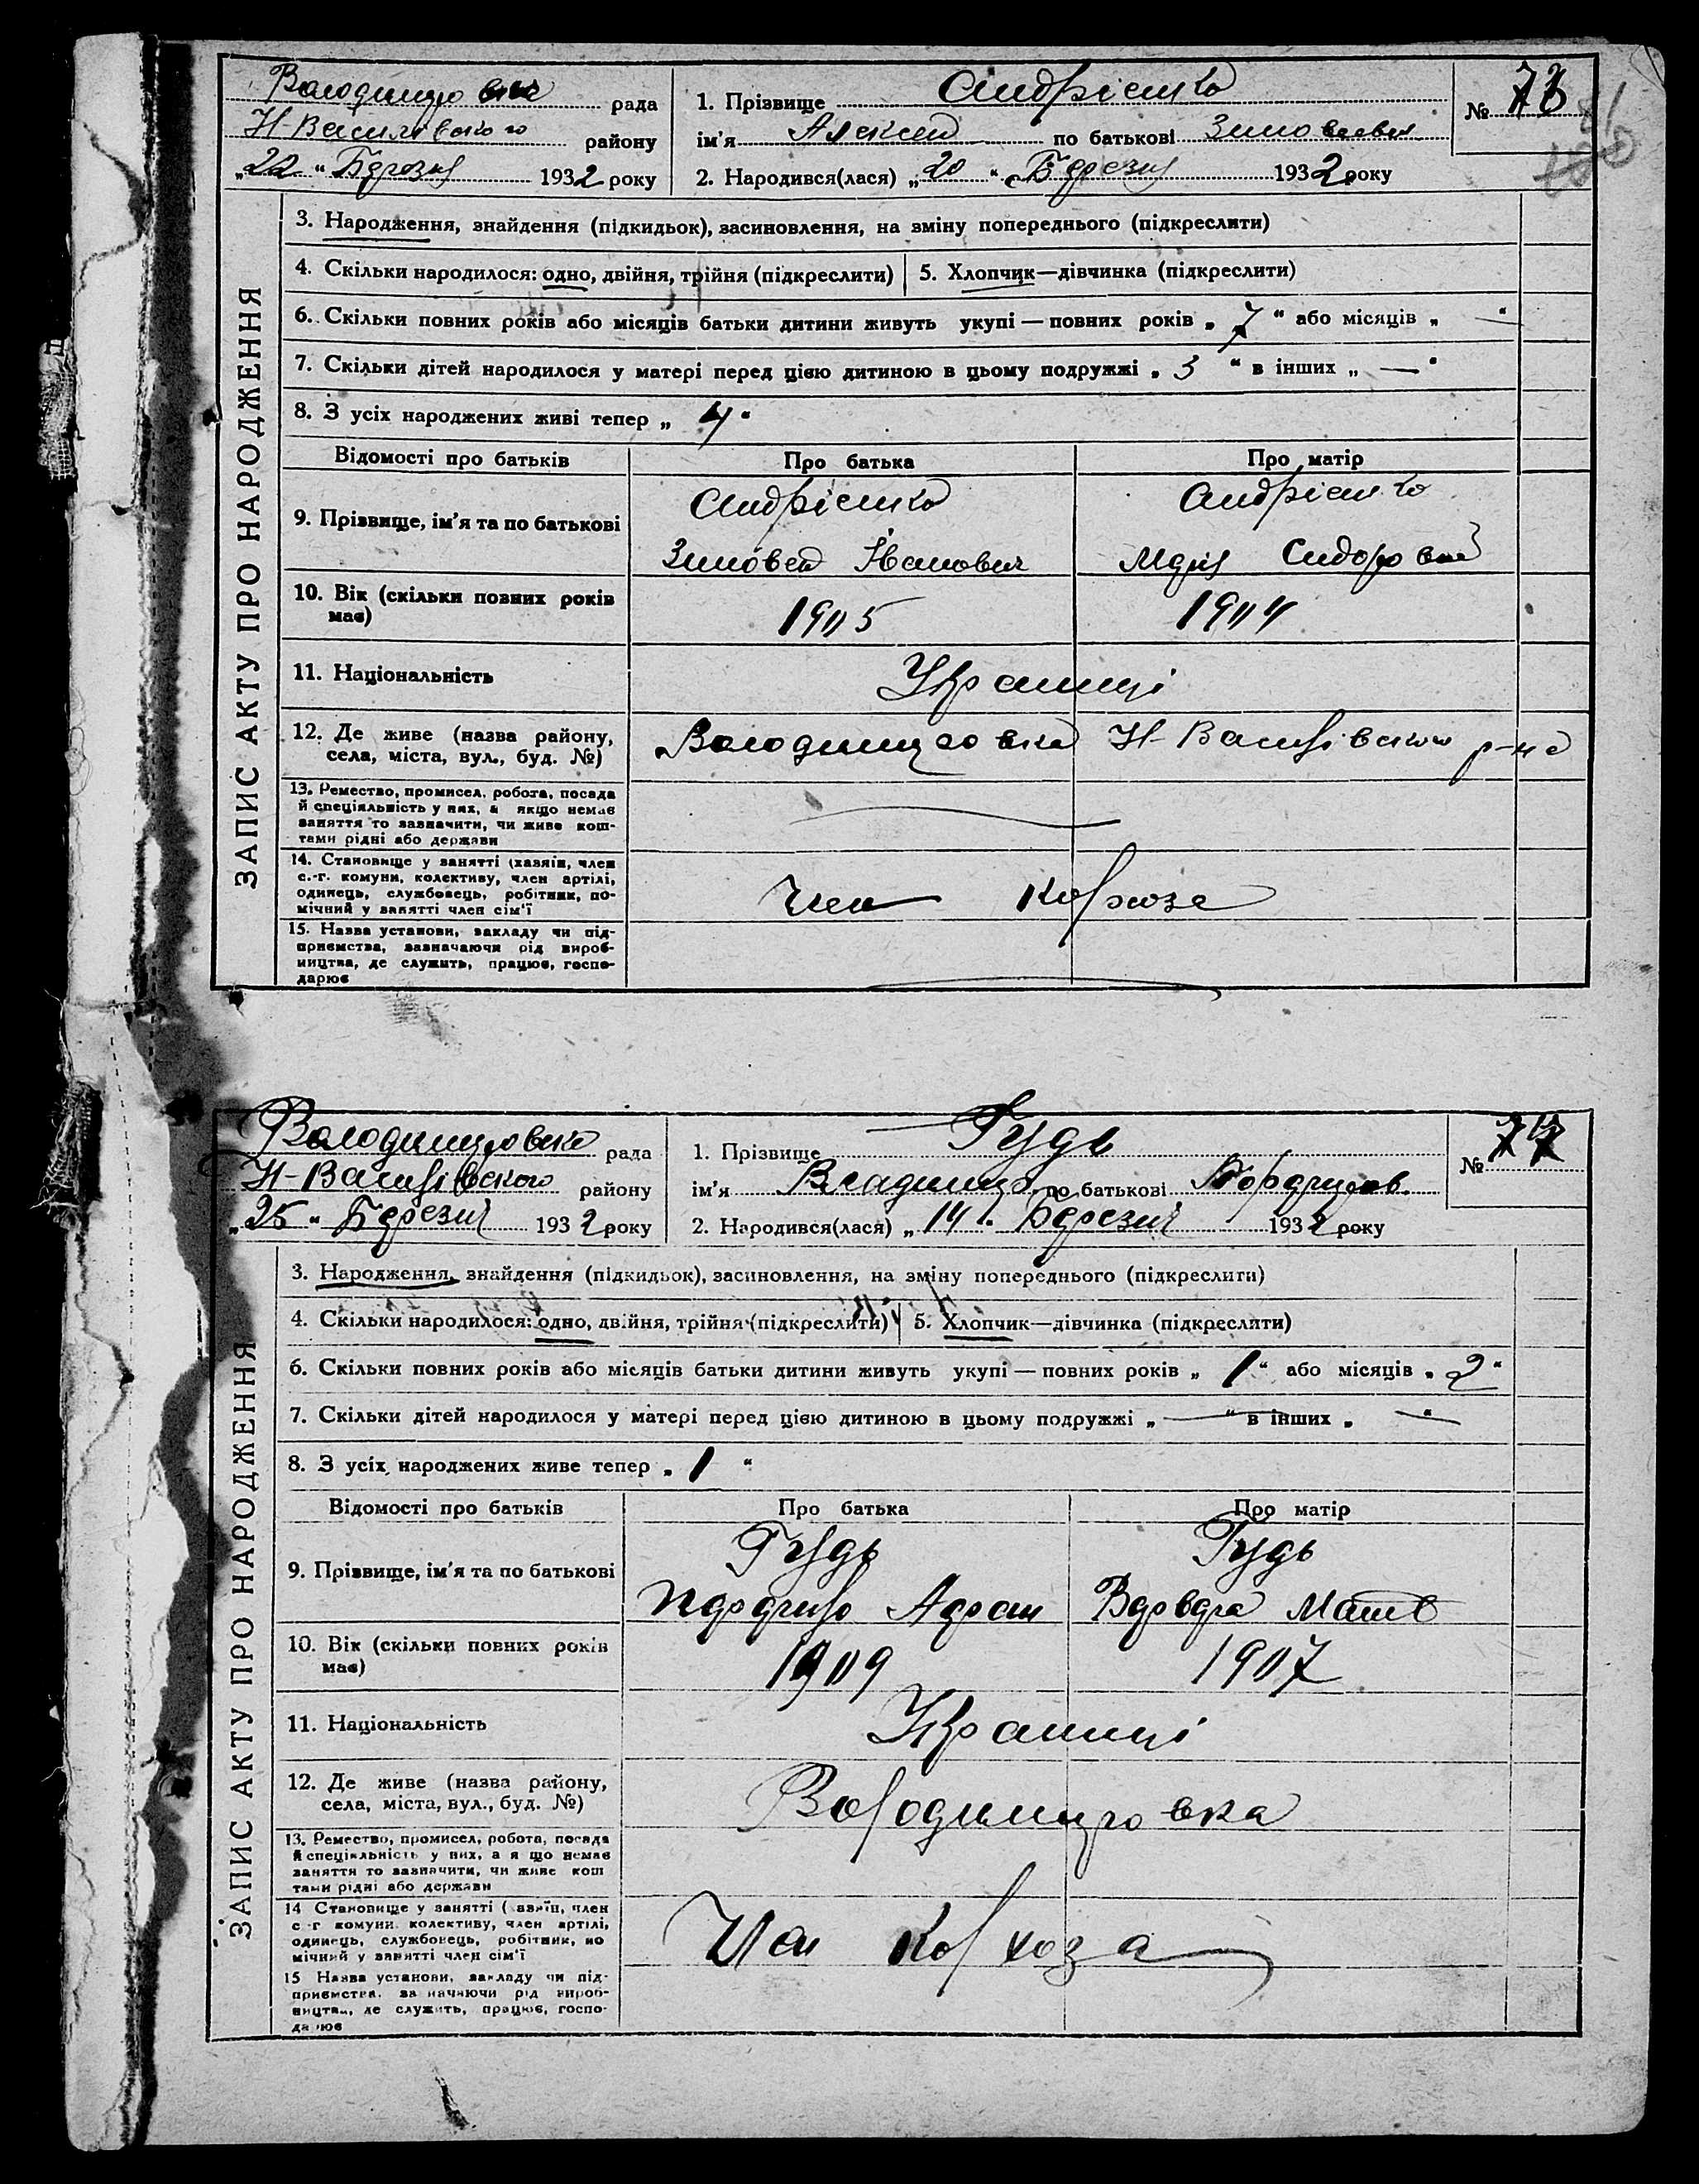 Володимировска рада
Н-Василівского району
„22“ Березня 1932 року
1. Прізвище Андрієнко
ім'я Алексей по батькові Зиновеевич
2. Народився(лася) „20“ Березня 1932 року
№
ЗАПИС АКТУ ПРО НАРОДЖЕННЯ
3. Народження, знайдення (підкидьок), засиновлення, на зміну попереднього (підкреслити)
4. Скільки народилося: одно, двійня, трійня (підкреслити) 5. Хлопчик—дівчинка (підкреслити)
6. Скільки повних років або місяців батьки дитини живуть укупі — повних років „7“ або місяців „—“
7. Скільки дітей народилося у матері перед цією дитиною в цьому подружжі „3“ в інших „—“
8. З усіх народжених живі тепер „4“
Відомості про батьків Про батька Про матір
9. Прізвище, ім'я та по батькові Андрієнко Андрієнко
Зиновей Іванович Марія Сидоровна
10. Вік (скільки повних років має) 1905 1904
11. Національність Українці
12. Де живе (назва району, села, міста, вул., буд. №) Володимировка Н-Василівского р-на
13. Ремество, промисел, робота, посада
й спеціяльність у них, а якщо немає
заняття то зазначити, чи живе кош-
тами рідні або держави
14. Становище у занятті (хазяїн, член
с.-г. комуни, колективу, член артілі,
одинець, службовець, робітник, по-
мічний у занятті член сім'ї
Член колхоза
15. Назва установи, закладу чи під-
приємства, зазначаючи рід вироб-
ництва, де служить, працює, госпо-
дарює
Володимировска рада
Н-Василівского району
„25“ Березня 1932 року
1. Прізвище Гудь
ім'я Владимир по батькові
2. Народився(лася) „14“ Березня 1932 року
№
ЗАПИС АКТУ ПРО НАРОДЖЕННЯ
3. Народження, знайдення (підкидьок), засиновлення, на зміну попереднього (підкреслити)
4. Скільки народилося: одно, двійня, трійня (підкреслити) 5. Хлопчик—дівчинка (підкреслити)
6. Скільки повних років або місяців батьки дитини живуть укупі — повних років „1“ або місяців „2“
7. Скільки дітей народилося у матері перед цією дитиною в цьому подружжі „—“ в інших „—“
8. З усіх народжених живе тепер „1“
Відомості про батьків Про батька Про матір
9. Прізвище, ім'я та по батькові Гудь Гудь
Варвара Матв
10. Вік (скільки повних років має) 1909 1907
11. Національність Українці
12. Де живе (назва району, села, міста, вул., буд. №) Володимировка
13. Ремество, промисел, робота, посада
й спеціяльність у них, а я що немає
заняття то зазначити, чи живе кош
тами рідні або держави
14 Становище у занятті ( азяїн, член
с -г комуни колективу, член артілі,
одинець, службовець, робітник, по
мічний у занятті член сім'ї
Член колхоза
15 Назва установи, закладу чи під-
приємства, за начаючи рід вироб-
ництва, де служить, працює, госпо-
да ює